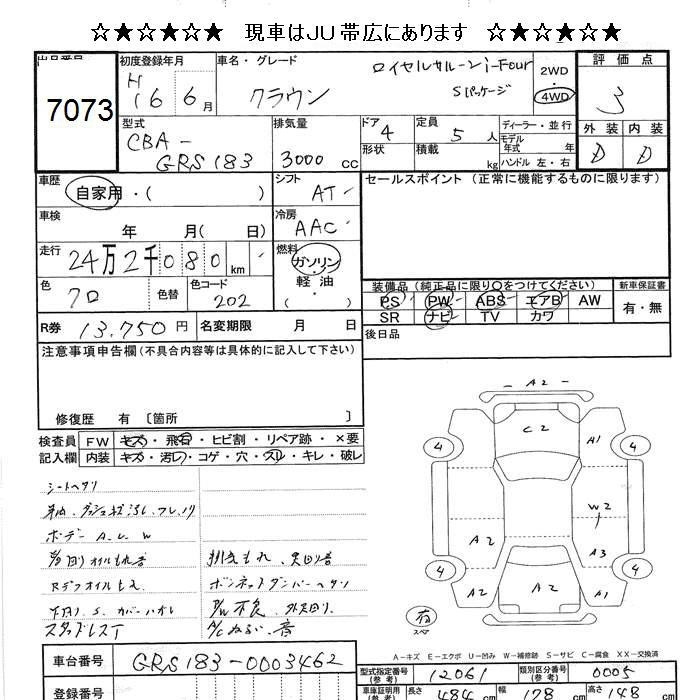 ☆★☆★☆ 現車はJU帯広にあります ☆★☆★☆
出品番号
7073
初度登録年月
H16 6月
車名・グレード
クラウン
ロイヤルサルーン i-Four
Sパッケージ
2WD
4WD
評価点
3
外装 内装
D D
型式
CBA-
GRS183
排気量
3000 cc
ドア 4
形状
定員 5 人
積載 kg
ディーラー・並行
モデル年式 年
ハンドル 左・右
車歴
自家用・( )
シフト
AT
セールスポイント (正常に機能するものに限ります)
車検
年 月( 日)
冷房
AAC
走行
24万2千080 km
燃料
ガソリン
軽油
( )
色
クロ
色替
色コード
202
装備品(純正品に限り○をつけてください)
新車保証書
PS PW ABS エアB AW
有・無
SR ナビ TV カワ
R券 13,750 円
名変期限 月 日
後日品
注意事項申告欄(不具合内容等は具体的に記入して下さい)
修復歴 有 〔箇所 〕
検査員
記入欄
FW キズ・飛石・ヒビ割・リペア跡・×要
内装 キズ・汚レ・コゲ・穴・スレ・キレ・破レ
シートヘタリ
ボデー A.U.W
Rデフオイルもれ
下回り S. カバーハオレ
スタッドレスT
排気もれ
ボンネットダンパーヘタリ
P/W不良
A/Cぬるい、音
A2
C2
A1
4
4
W2
A2
A3
4
4
A2
A2
A1
有
スペア
A-キズ E-エクボ U-凹み W-補修跡 S-サビ C-腐食 XX-交換済
車台番号
GRS183-0003462
型式指定番号(参考)
12061
類別区分番号(参考)
0005
登録番号
車庫証明用(参考)
長さ 484 cm
幅 178 cm
高さ 148 cm